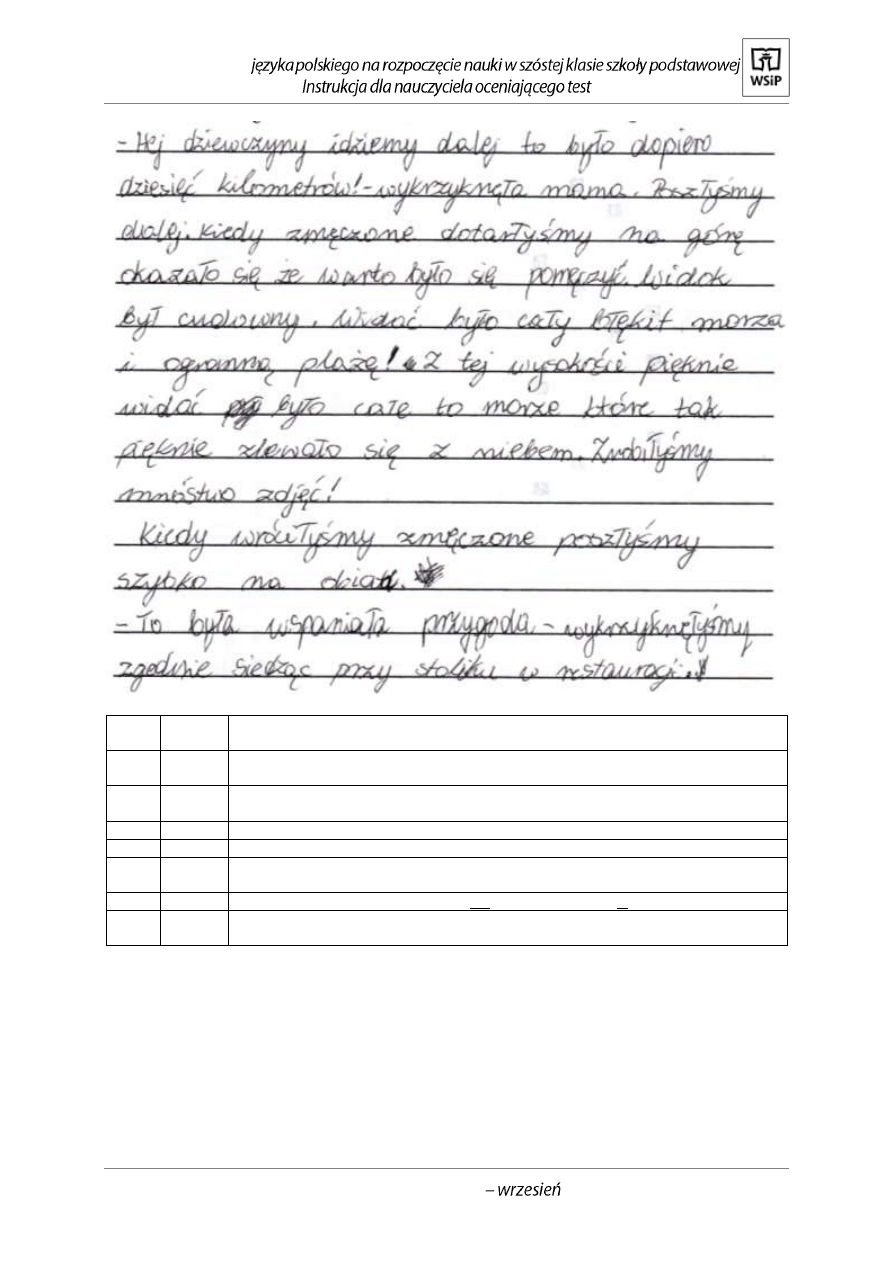 języka polskiego na rozpoczęcie nauki w szóstej klasie szkoły podstawowej
Instrukcja dla nauczyciela oceniającego test
WSiP
- Hej dziewczyny idziemy dalej to było dopiero
dziesięć kilometrów! - wykrzyknęła mama. Poszłyśmy
dalej. Kiedy zmęczone dotarłyśmy na górę
okazało się że warto było się pomęczyć. Widok
był cudowny. Widać było cały błękit morza
i ogromną plażę! Z tej wysokości pięknie
widać było całe to morze które tak
pięknie zlewało się z niebem. Zrobiłyśmy
mnóstwo zdjęć!
Kiedy wróciłyśmy zmęczone poszłyśmy
szybko na obiad.
- To była wspaniała przygoda - wykrzyknęłyśmy
zgodnie siedząc przy stoliku w restauracji.
– wrzesień